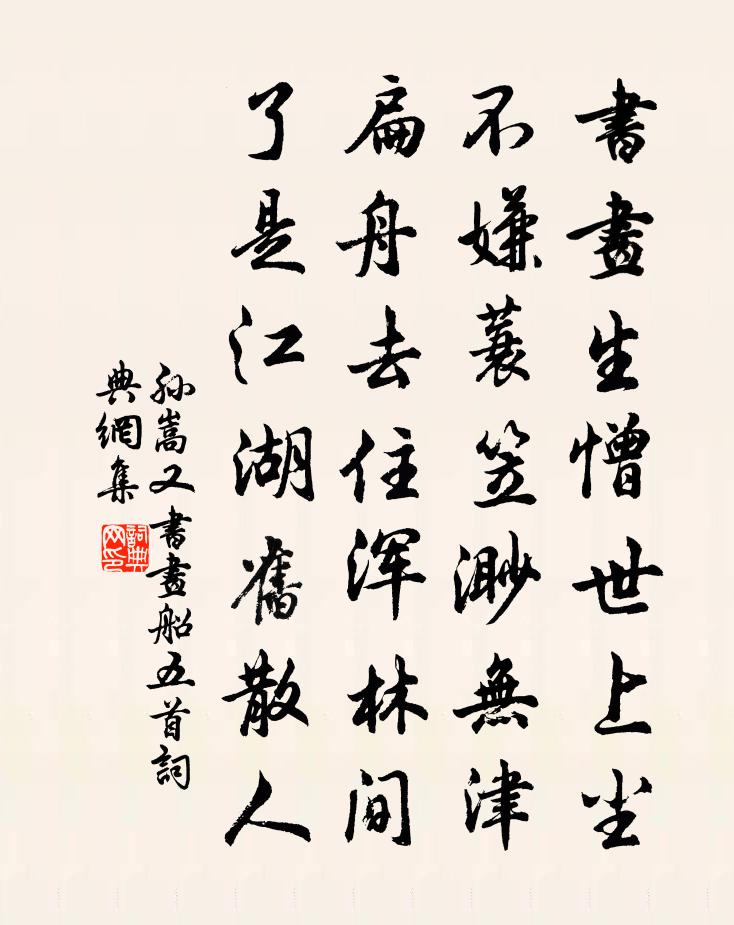 書畫生憎世上尘
不嫌蓑笠渺無津
扁舟去住浑林间
了是江湖舊散人
孙嵩又書畫船五首詞
典網集
詞典网印